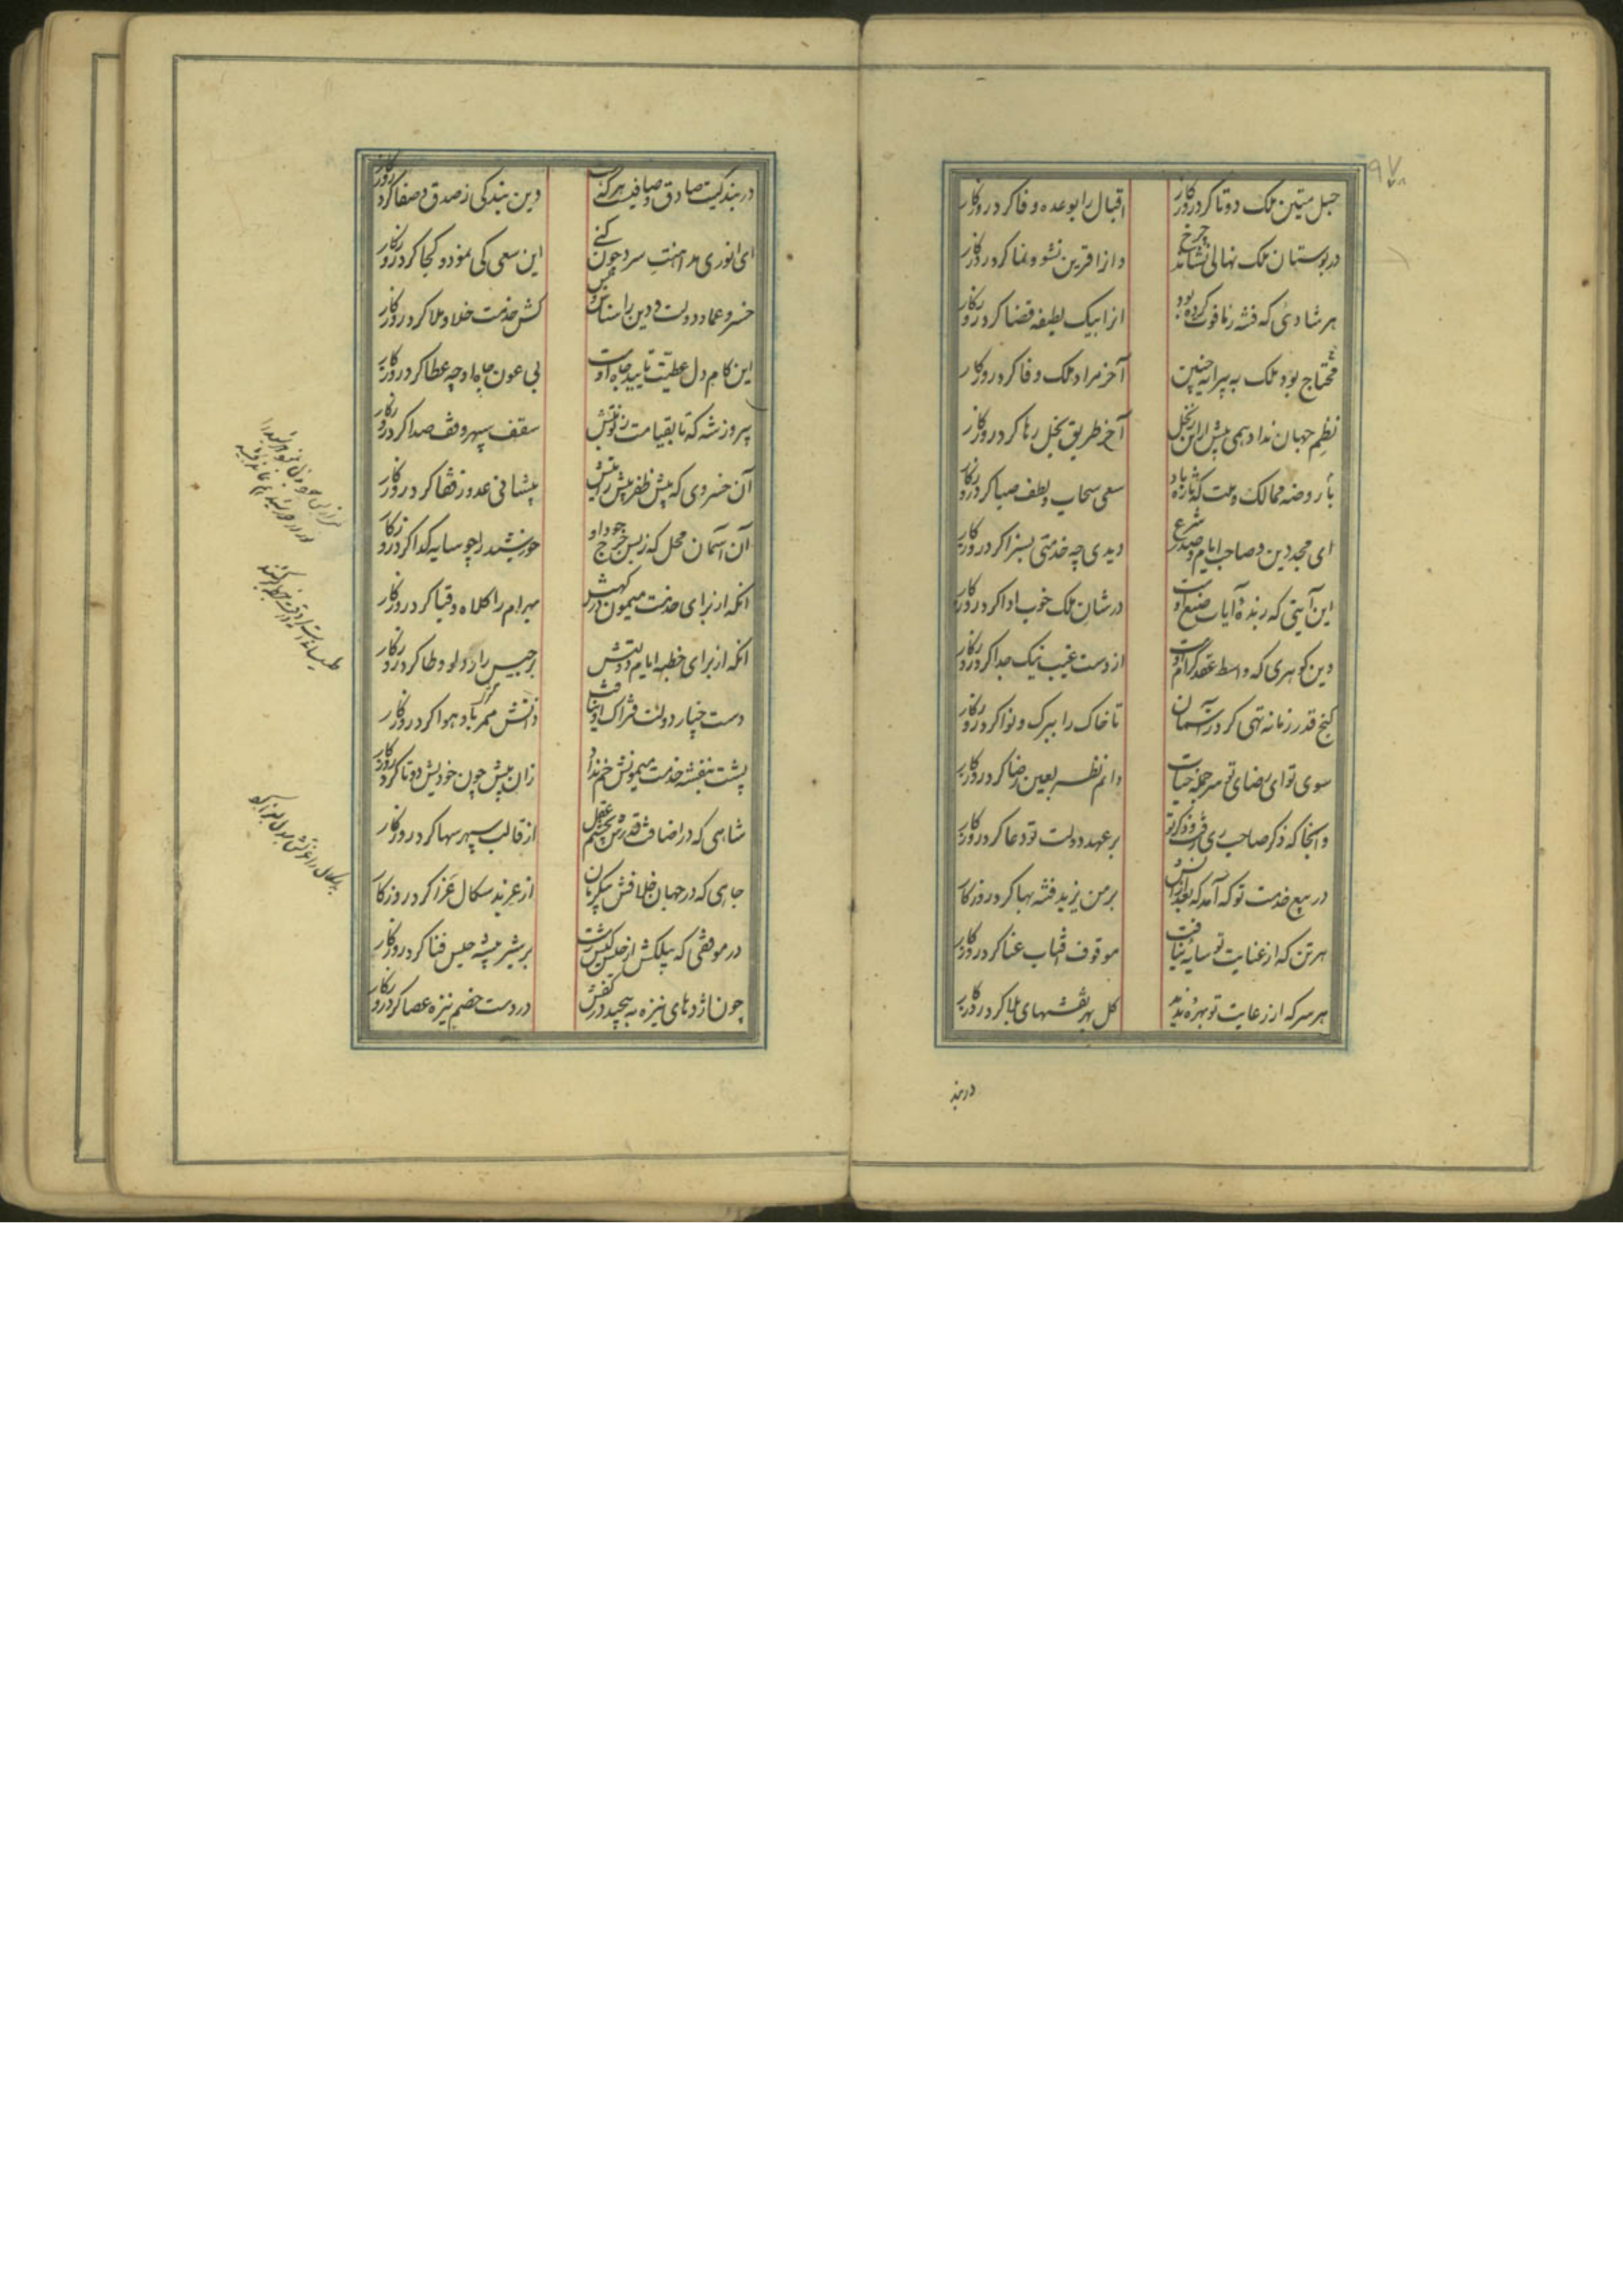 ۹۷
حبل متین ملک دوتا کرد روزکار
اقبال را بوعده وفا کرد روزکار
در بوستان ملک نهالی نشاند چرخ
و از اقرین نشو و نما کرد روزکار
هر شادئی که فتنه ز ما فوت کرده بود
انرا بیک لطیفه قضا کرد روزکار
محتاج بود ملک به پیرایه چنین
آخر مراد ملک وفا کرد روزکار
نظم جهان نداد همی پیش ازین ز بخل
آخر طریق بخل رها کرد روزکار
تا روضه ممالک و ملت که تازه باد
سعی سحاب و لطف صبا کرد روزکار
ای مجد دین و صاحب ایام و صدر شرع
دیدی چه خدمتی بسزا کرد روزکار
این آیتی که زبدهٔ آیات صنع اوست
در شان ملک خوب ادا کرد روزکار
وین کوهری که واسطه عقد کرام اوست
از دست غیب نیک جدا کرد روزکار
کنج قدر زمانه تهی کرد در آسمان
تا خاک را ببرک و نوا کرد روزکار
سوی تو ای رضای تو سرچشمه حیات
دانم نظر بعین رضا کرد روزکار
و انجا که ذکر صاحب ری رفت و ذکر تو
بر عهد دولت تو دعا کرد روزکار
در بیع خدمت تو که آمد که بعد ازانش
بر من یزید فتنه بها کرد روزکار
هر تن که از عنایت تو سایهٔ نیافت
موقوف افتاب عنا کرد روزکار
هر سر که از رعایت تو بهرهٔ ندید
کل بهر نقشهای بلا کرد روزکار
در بند
در بندکیت صادق و صافیست هر که هست
وین بندکی ز صدق و صفا کرد روزکار
ای انوری مداهنت سرد چون کنی
این سعی کی نمود و کجا کرد روزکار
خسرو عماد دولت و دین را شناس و بس
کش خدمت خلا و ملا کرد روزکار
این کام دل عطیت تایید جاه اوست
بی عون جاه او چه عطا کرد روزکار
پیروز شه که تا بقیامت ز نوبتش
سقف سپهر وقف صدا کرد روزکار
آن خسروی که پیش ظفر پیشه رایتش
پیشانی عدو ز قفا کرد روزکار
آن آسمان محل که ز بس خرج جود او
خورشید را چو سایه کدا کرد روزکار
انکه از برای خدمت میمون درکهش
بهرام را کلاه و قبا کرد روزکار
انکه از برای خطبه ایام دولتش
برجیس را ز دلو وطا کرد روزکار
دست چنار دولت فتراک او نیافت
زانش ممر باد و هوا کرد روزکار
پشت بنفشه خدمت میمونش خم نداد
زان پیش چون خودیش دوتا کرد روزکار
شاهی که در اضافت قدرش بچشم عقل
از قالب سپهر سها کرد روزکار
جایی که در جهان خلافش یکی بران
از عز بد سکال عزا کرد روزکار
در موقفی که پیلکش از خلسه کین کشت
بر شیر بیشه حبس فنا کرد روزکار
چون اژدهای نیزه به پیچید در کفش
در دست خصم نیزه عصا کرد روزکار